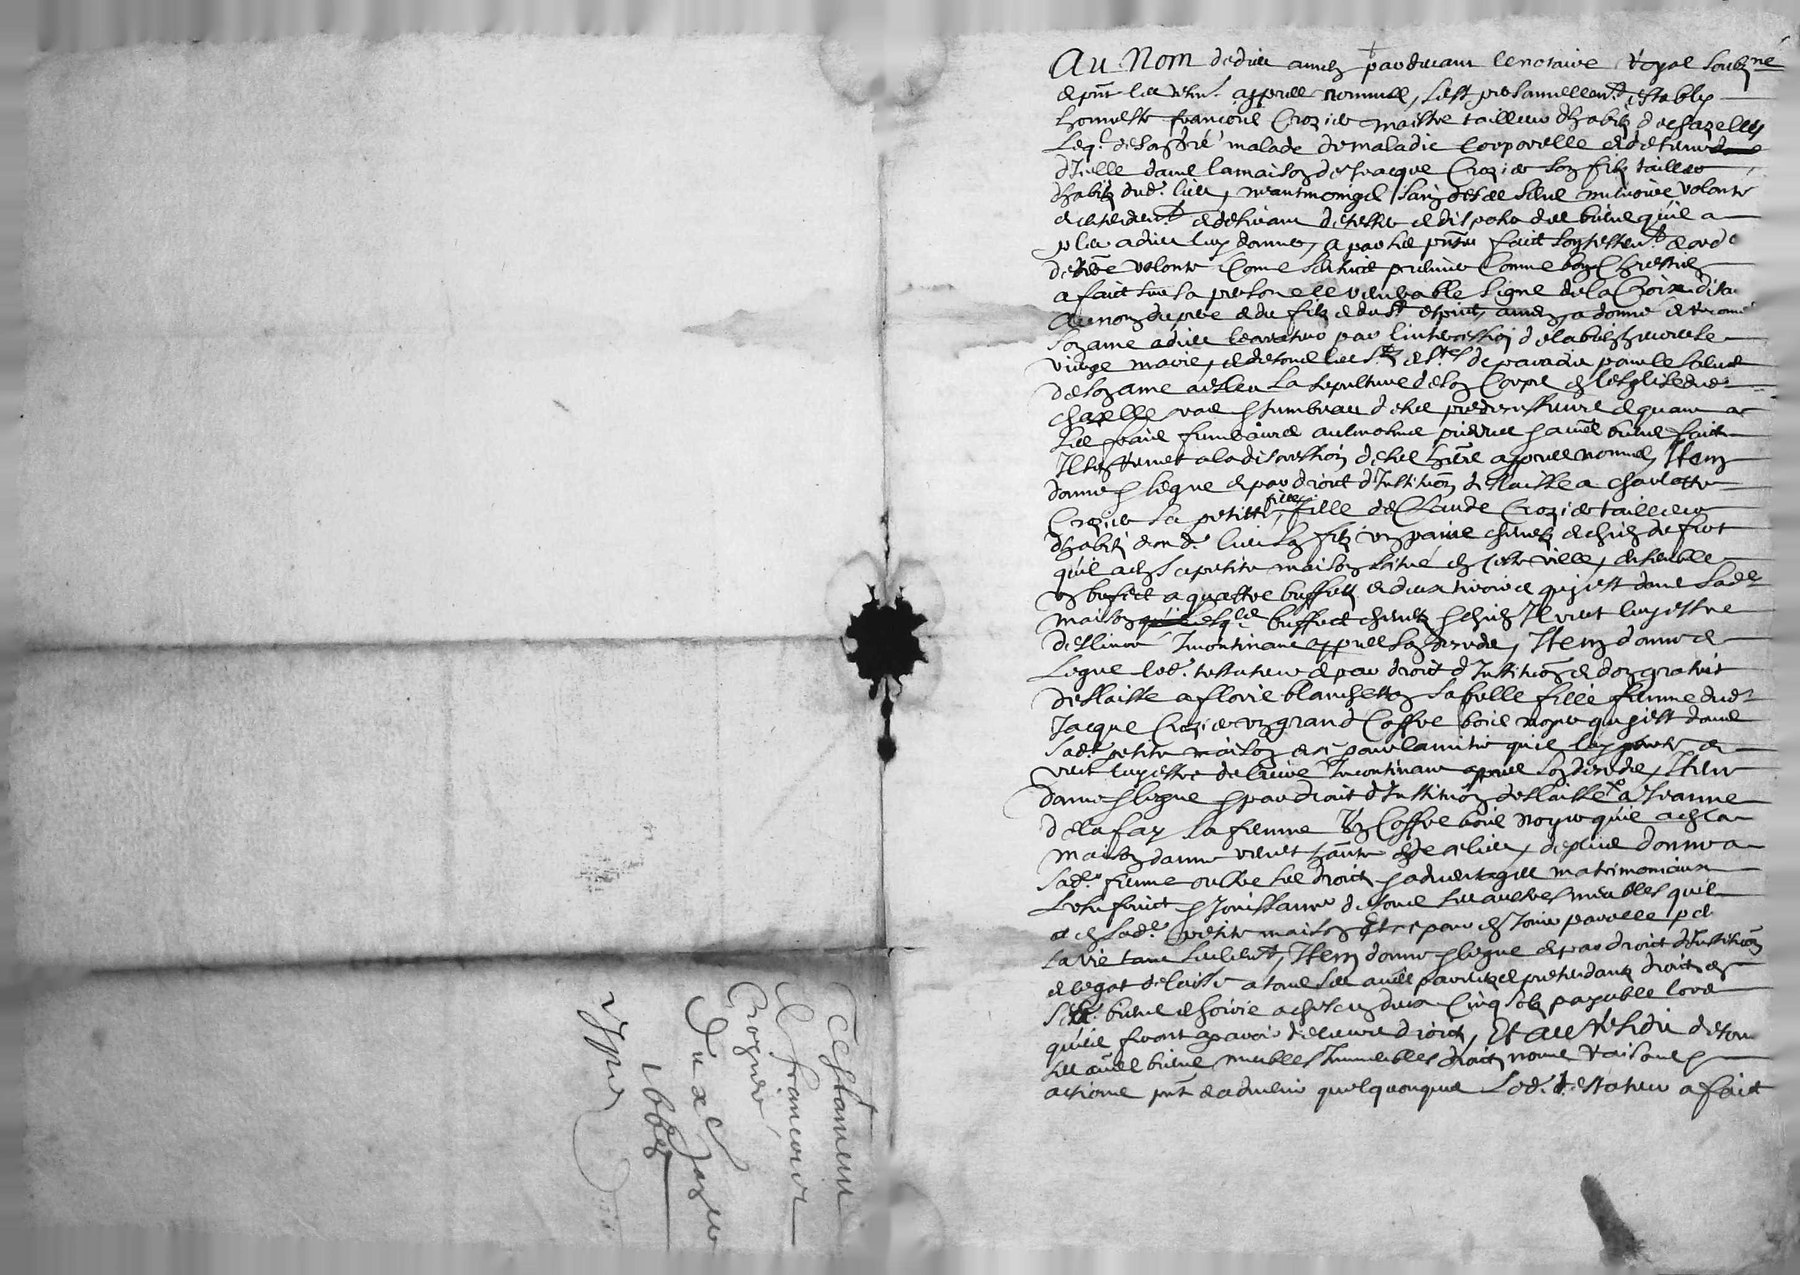 Au Nom de dieu amen pardevant le notaire Royal soubzné
et pnt les tesms. appres nommes, s'est personnellemt estably
honneste françois Crozier maistre tailleur d'habitz de chazelles
leql. de son gré malade de maladie corporelle et detenu
d'icelle dans la maison de Jacques Crozier son filz tailleur
d'habitz dud. lieu, neantmoingz sain de ses sens memoire volonté
et entendemt. et desirant de tester et disposer des biens qu'il a
pleu a dieu luy donner, a par ses pntes faict son testemt. et ord
de dere volonte come s'ensuict premier comme bon chrestien
a faict sur sa personne le venerable signe de la Croix disa
Au nom du pere et du filz et du St esprit, amen, a donné et recomé
son ame a dieu le createur par l'intercession de la bienheureuse
vierge marie, et de tous les Stz et Stes de paradis pour le salut
de son ame a esleu la sepulture de son corps en l'esglise dud.
chazelles vas et tumbeau de ses predecesseurs et quant a
ses frais funeraires aulmosnes prieres et autres biens faictz
Il les remet a la discretion de ses hers appres nommes, Item
donne et legue et par droit d'Institution delaisse a Charlotte
Crozier sa petitte fille, fille de Claude Crozier tailleur
d'habitz dud. lieu son filz ung paire chenetz et chien de fert
qu'il a en sa petitte maison scitué en ceste ville, ensemble
ung buffect a quattre buffetz et deux tiroirs qui est dans sad.
maison lesqlz buffect chenetz et chien Il veut luy estre
deslivré Incontinant appres son deces, Item donne et
legue led. testateur et par droit d'Institution et don gratuit
deslaisse a florie blanchetton sa belle fille femme dud.
Jacques Crozier ung grand Coffre bois noyer qui est dans
sad. petitte maison et ce pour l'amitié qu'il luy porte et
veut luy estre deslivré Incontinant appres son deces, Item
donne et legue et par droit d'Institution deslaisse a Jeanne
delafay sa femme Un Coffre bois noyer qu'il a en la
maison dud. lieu, de plus donne a
sad. femme oultre ses droitz et advantages matrimoniaux
l'usufruict et Jouissance de tous ses autres meubles qu'il
a en sad. petitte maison et ce pour en Jouir par elle pd
sa vie tant seulemt, Item donne et legue et par droit d'Institution
et legat delaisse a tous ses autres parentz et pretendantz droitz en
ses biens et hoirie a chescun deux Cinq solz payable lors
qu'ilz feront apparoir de leurs droitz, Et au Residu de tous
ses autres biens meubles Immeubles droitz noms Raisons et
actions pnt et advenir quelquonques led. testateur a faict
Testament
de françois
Crozier
Du x
1668